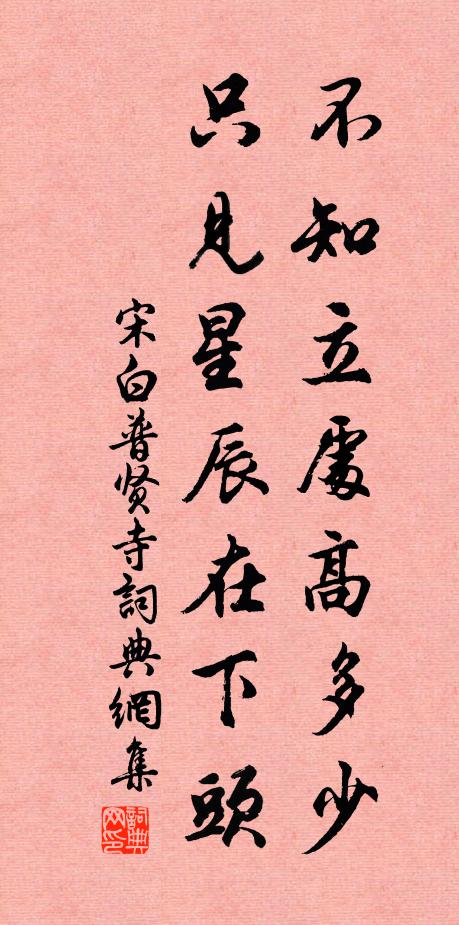 不知立處高多少
只見星辰在下頭
宋白普賢寺詞典網集
詞典网印